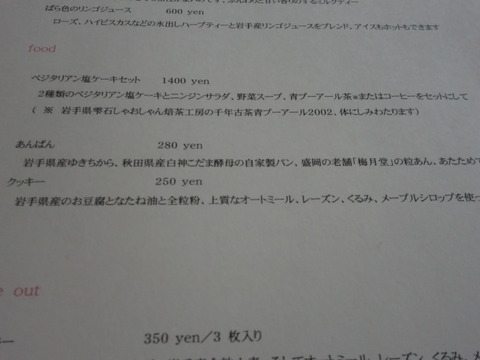 ばら色のリンゴジュース 600 yen
ローズ、ハイビスカスなどの水出しハーブティーと岩手産リンゴジュースをブレンド、アイスもホットもできます
food
ベジタリアン塩ケーキセット 1400 yen
2種類のベジタリアン塩ケーキとニンジンサラダ、野菜スープ、青プーアール茶※またはコーヒーをセットにして
( ※ 岩手県雫石しゃおしゃん焙茶工房の千年古茶青プーアール2002、体にしみわたります)
あんぱん 280 yen
岩手県産ゆきちから、秋田県産白神こだま酵母の自家製パン、盛岡の老舗「梅月堂」の粒あん、あたためて
クッキー 250 yen
岩手県産のお豆腐となたね油と全粒粉、上質なオートミール、レーズン、くるみ、メープルシロップを使っ
out
350 yen/3 枚入り
オートミール、レーズン、くるみ、